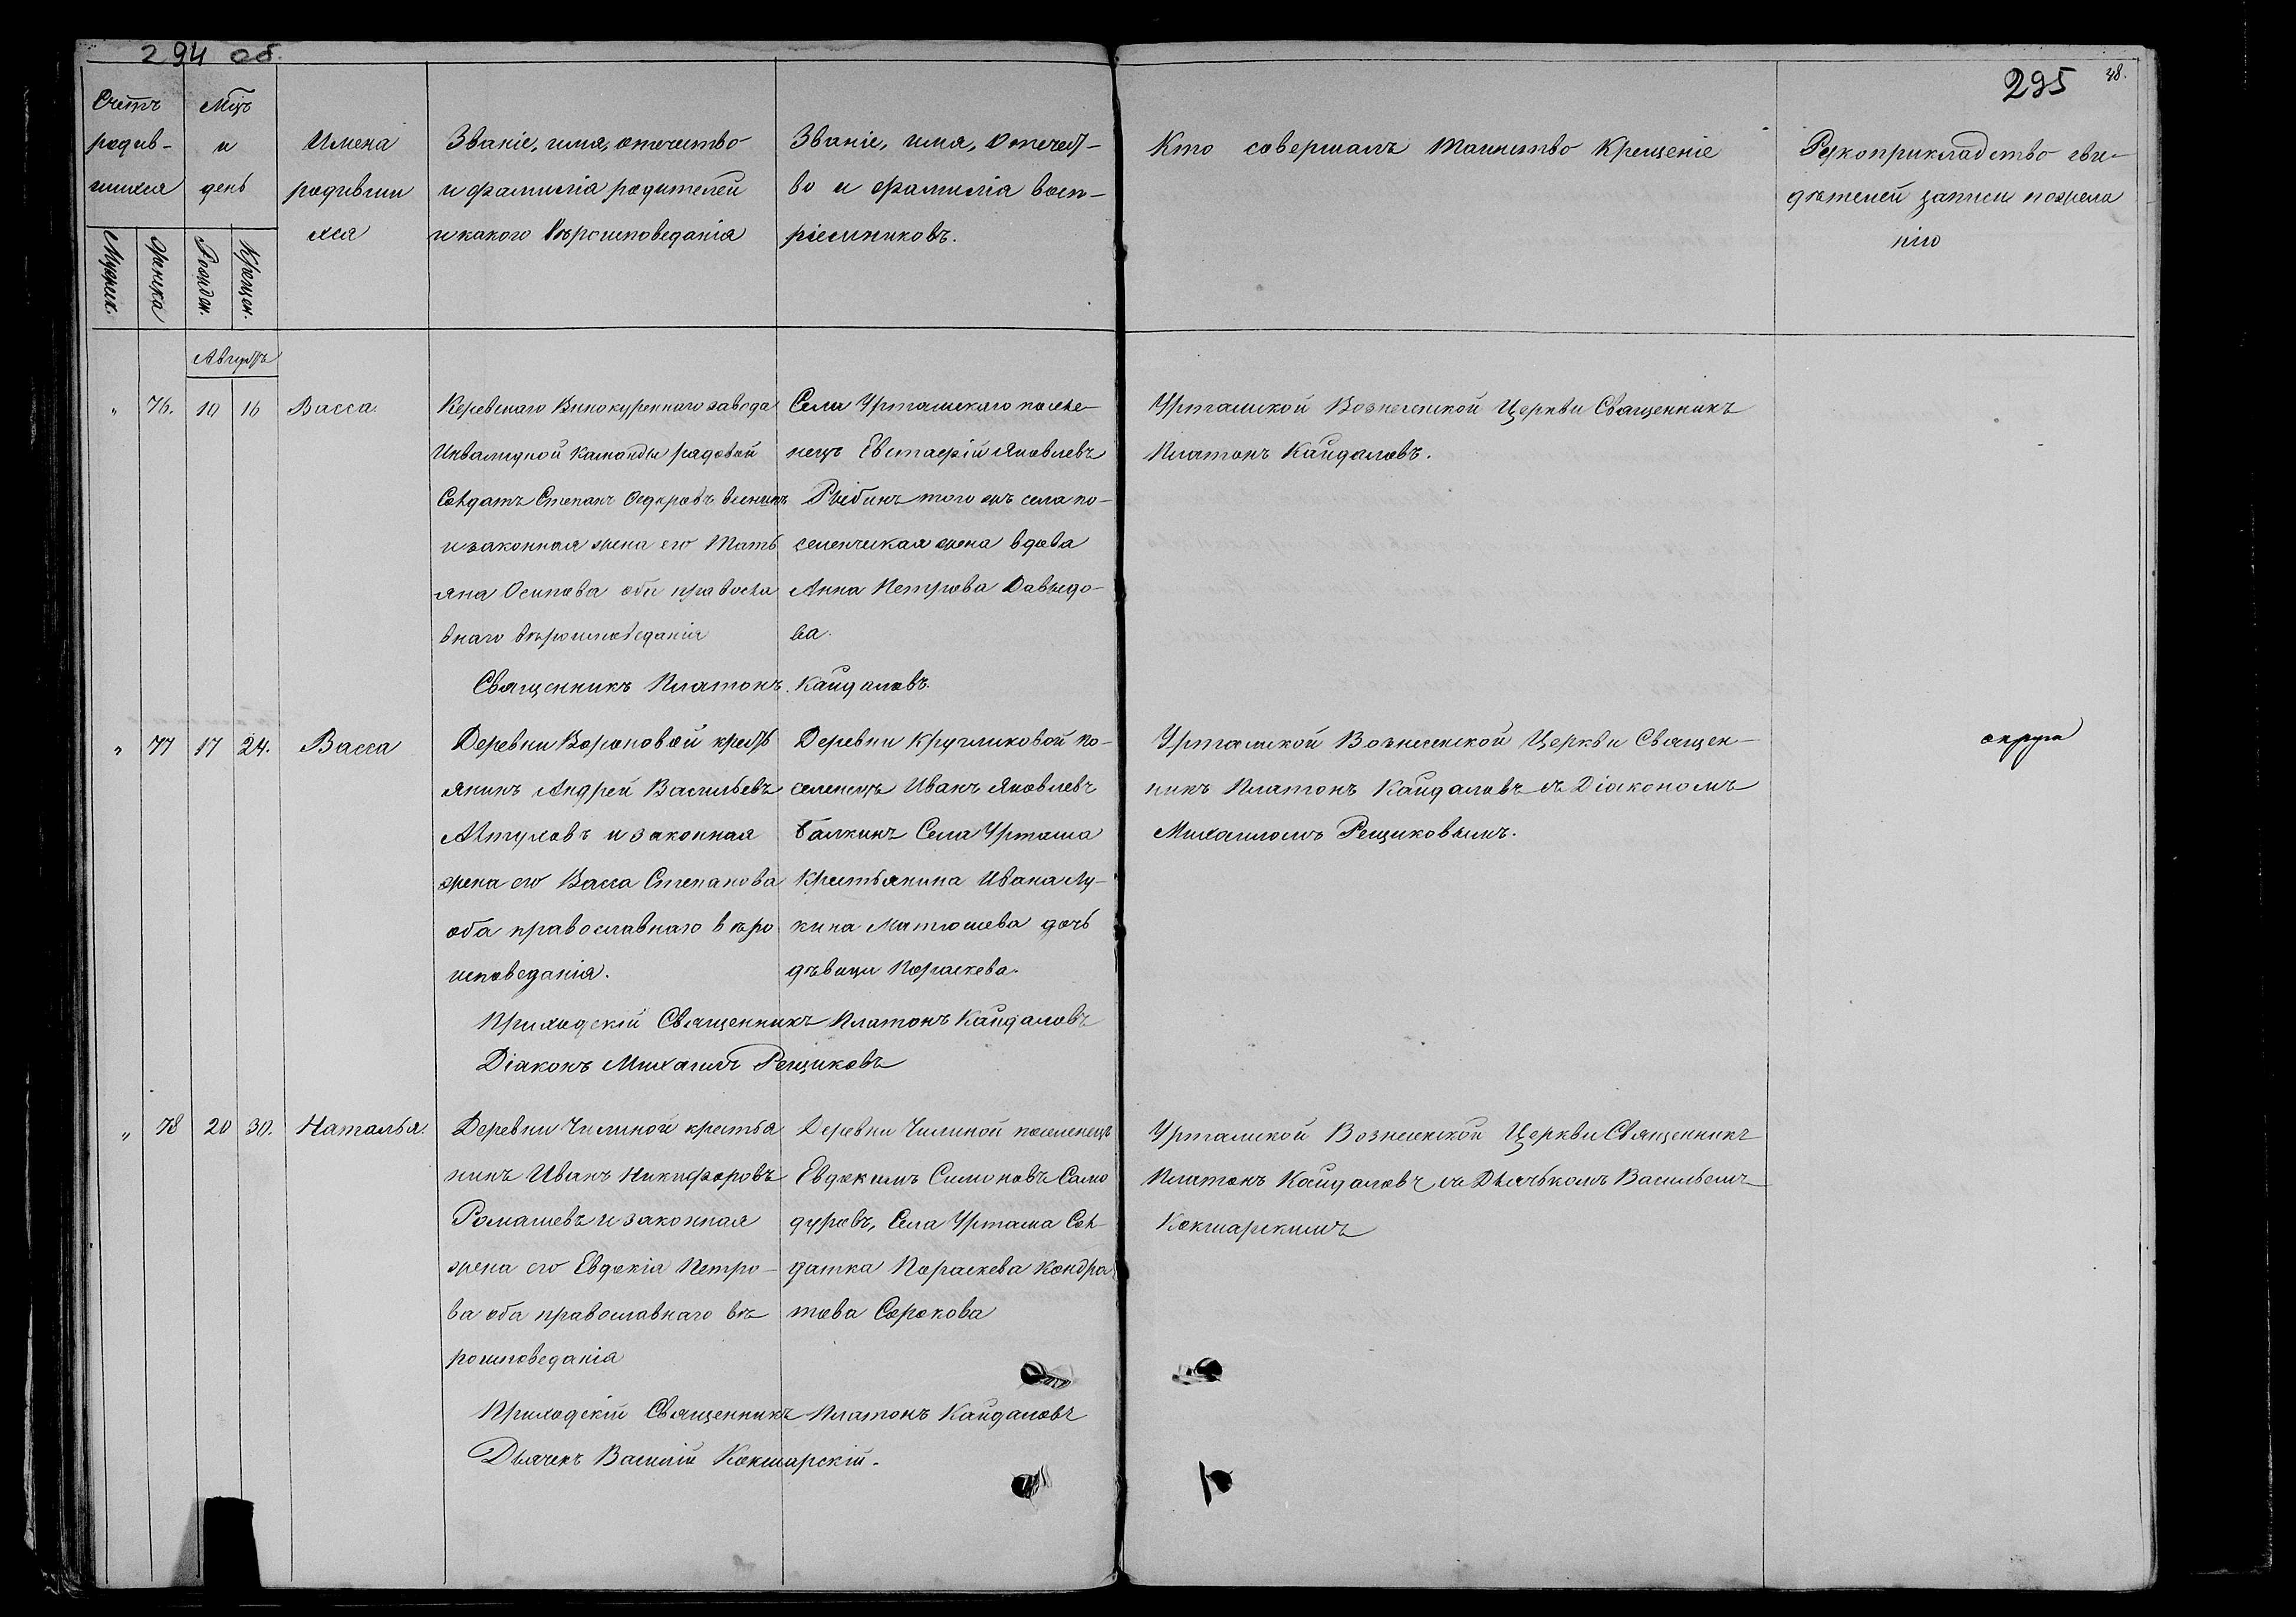 294 об.
295
48.
Счетъ
родив-
шихся
Мужеск.
Женска
Мцъ
и
день
Рожден.
Крещен.
Имена
родивши
хся
Званіе, имя, отечество
и фамилія родителей
и какого вѣроисповеданія
Званіе, имя, отечест-
во и фамилія восп-
ріемниковъ.
Кто совершалъ таинство крещеніе
Рукоприкладство сви-
дѣтелей записи пожела
нію
Августъ
" 76. 10 16 Васса.
Керевскаго Винокуреннаго завода
Инвалидной каманды рядовой
Солдатъ Степанъ
и законная жена его Тать
яна Осипова оба правосла
внаго вѣроисповеданія
Села Уртамскаго поселе-
нецъ Евстафій Яковлевъ
Рыбинъ того жъ села по-
селенческая жена вдова
Анна Петрова Давыдо-
ва.
Уртамской Вознесенской Церкви Священникъ
Платонъ Кайдаловъ.
Священникъ Платонъ Кайдаловъ.
" 77 17 24. Васса
Деревни Вороновой кресть
янинъ Андрей Васильевъ
Алтуховъ и законная
жена его Васса Степанова
оба православнаго вѣро
исповеданія.
Деревни Кругликовой по-
селенецъ Иванъ Яковлевъ
Балкинъ Села Уртама
Крестьянина Ивана Лу-
кина Матюшева дочь
дѣвица Пораскева.
Уртамской Вознесенской Церкви Священ-
никъ Платонъ Кайдаловъ съ Діакономъ
Михаиломъ Рещиковымъ.
округи
Приходскій Священникъ Платонъ Кайдаловъ
Діаконъ Михаилъ Рещиковъ
" 78 20 30. Наталья.
Деревни Чилиной крестья
нинъ Иванъ Никифоровъ
Ромашевъ и законная
жена его Евдокія Петро-
ва оба православнаго вѣ
роисповеданія
Деревни Чилиной поселенецъ
Евдокимъ Симоновъ Само
дуровъ, Села Уртама Сол
датка Пораскева Кондра
това Сорокова
Уртамской Вознесенской Церкви Священникъ
Платонъ Кайдаловъ съ Дьячькомъ Васильемъ
Кокшарскимъ
Приходскій Священникъ Платонъ Кайдаловъ
Дьячекъ Василій Кокшарскій.